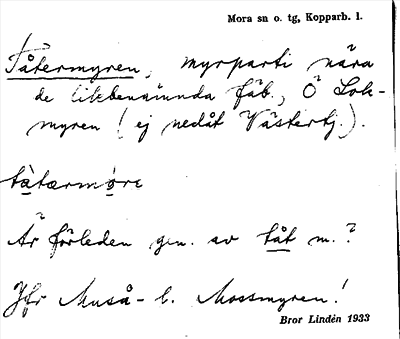 Mora sn o. tg, Kopparb. l.
Tåtermyren, myrparti nära
de likbenämnda fäb., Ö Lok-
myren (ej nedåt Västertj.).
tàtærmòre
Är förleden gen. av tåt m.?
Jfr Muså- l. Mossmyren!
Bror Lindén 1933